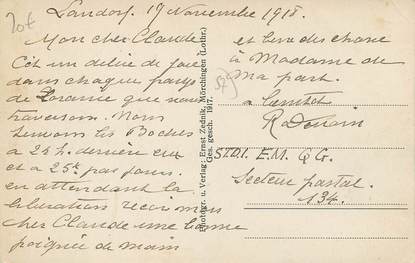 Landorf. 19 Novembre 1918.
Mon cher Claude
C'est un délire de joie
dans chaque pays
de Lorraine que nous
traversons. Nous
suivons les Boches
à 24 h. derrière eux
et à 25 k par jours.
en attendant la
libération reçois mon
cher Claude une bonne
poignée de main
et bien des choses
à Madame de
ma part.
à bientôt
STDI. E.M. Q.G.
Secteur postal.
134.
Photogr. u. Verlag: Ernst Zednik, Mörchingen (Lothr.)
Ges. gesch. 1917.